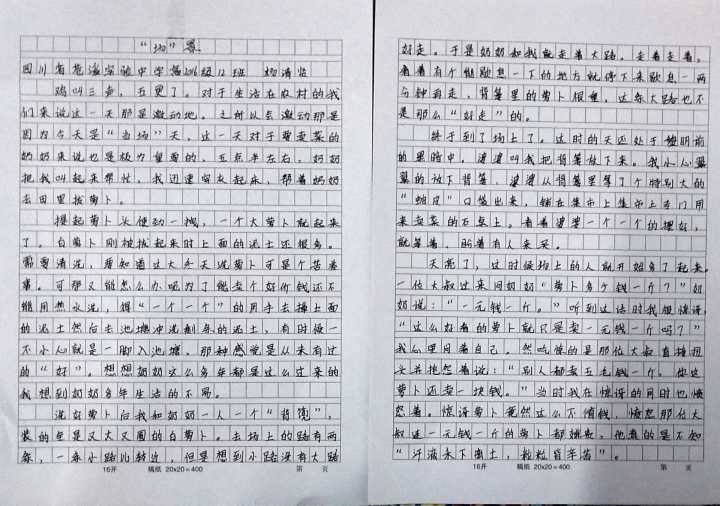 “场”景
四川省苍溪实验中学 12班 杨涛
鸡叫三声,五更了。对于生活在农村的我
们来说这一天那是激动地。之所以会激动那是
因为今天是“当场”天,这一天对于要卖菜的
奶奶来说也是极为重要的,五点半左右,奶奶
把我叫起来帮忙,我迅速穿衣起床,帮着奶奶
去田里拔萝卜。
提起萝卜头使劲一拽,一个大萝卜就起来
了。白萝卜刚被拔起来时上面的泥土还很多。
需要清洗,要知道这大冬天洗萝卜可是个苦差
事。可那又能怎么办呢为了能卖个好价钱还不
能用热水洗,得“一个一个”的用手去掉上面
的泥土然后去池塘冲洗剩余的泥土,有时候一
不小心就是一脚入池塘。那种感觉是从未有过
的“好”。想想奶奶这么多年都是这么过来的
我想到奶奶多年生活的不易。
洗好萝卜后我和奶奶一人一个“背篼”,
装的全是又大又圆的白萝卜。去场上的路有两
条,一条小路比较近,但是想到小路没有大路
好走。于是奶奶和我就走着大路。走着走着,
看着有个能歇息一下的地方就停下来歇息一两
分钟再走,背篓里的萝卜很重,这条大路也不
是那么“好走”的。
终于到了场上了。这时的天还处于黎明前
的黑暗中,婆婆叫我把背篓放下来。我小心翼
翼的放下背篓,婆婆从背篓里拿了个特别大的
口袋出来,铺在集市上集市上专门用
来卖菜的石桌上。看着婆婆一个一个的摆好,
就等着,盼着有人来买。
天亮了,这时候场上的人就开始多了起来。
一位大叔过来问奶奶“萝卜多少钱一斤?”奶
奶说:“一元钱一斤。”听到这话时我很惊讶,
“这么好看的萝卜就只是卖一元钱一斤吗?”
我心里问着自己。然而像的是那位大叔直摇扭
头并抱怨着说:“别人都卖五毛钱一斤。你这
萝卜还卖一块钱。”当时我在惊讶的同时也愤
怒着。惊讶萝卜竟然这么不值钱,愤怒那位大
叔连一元钱一斤的萝卜都嫌贵。他真的是不知
“汗滴禾下土,粒粒皆辛苦”。
16开 稿纸 20x20=400 第 页
16开 稿纸 20x20=400 第 页